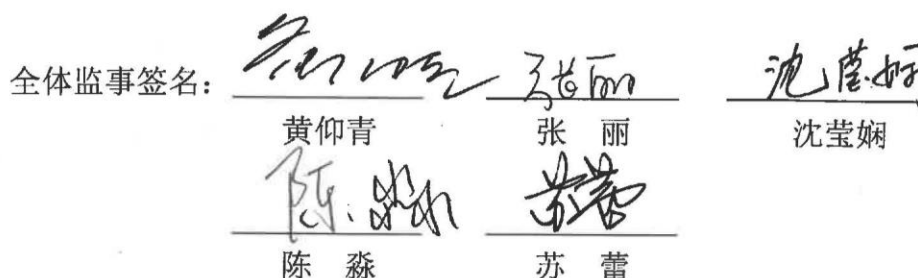 全体监事签名： 张丽 沈莹娴
黄仰青 张 丽 沈莹娴
陈淼 苏蕾
陈 淼 苏 蕾